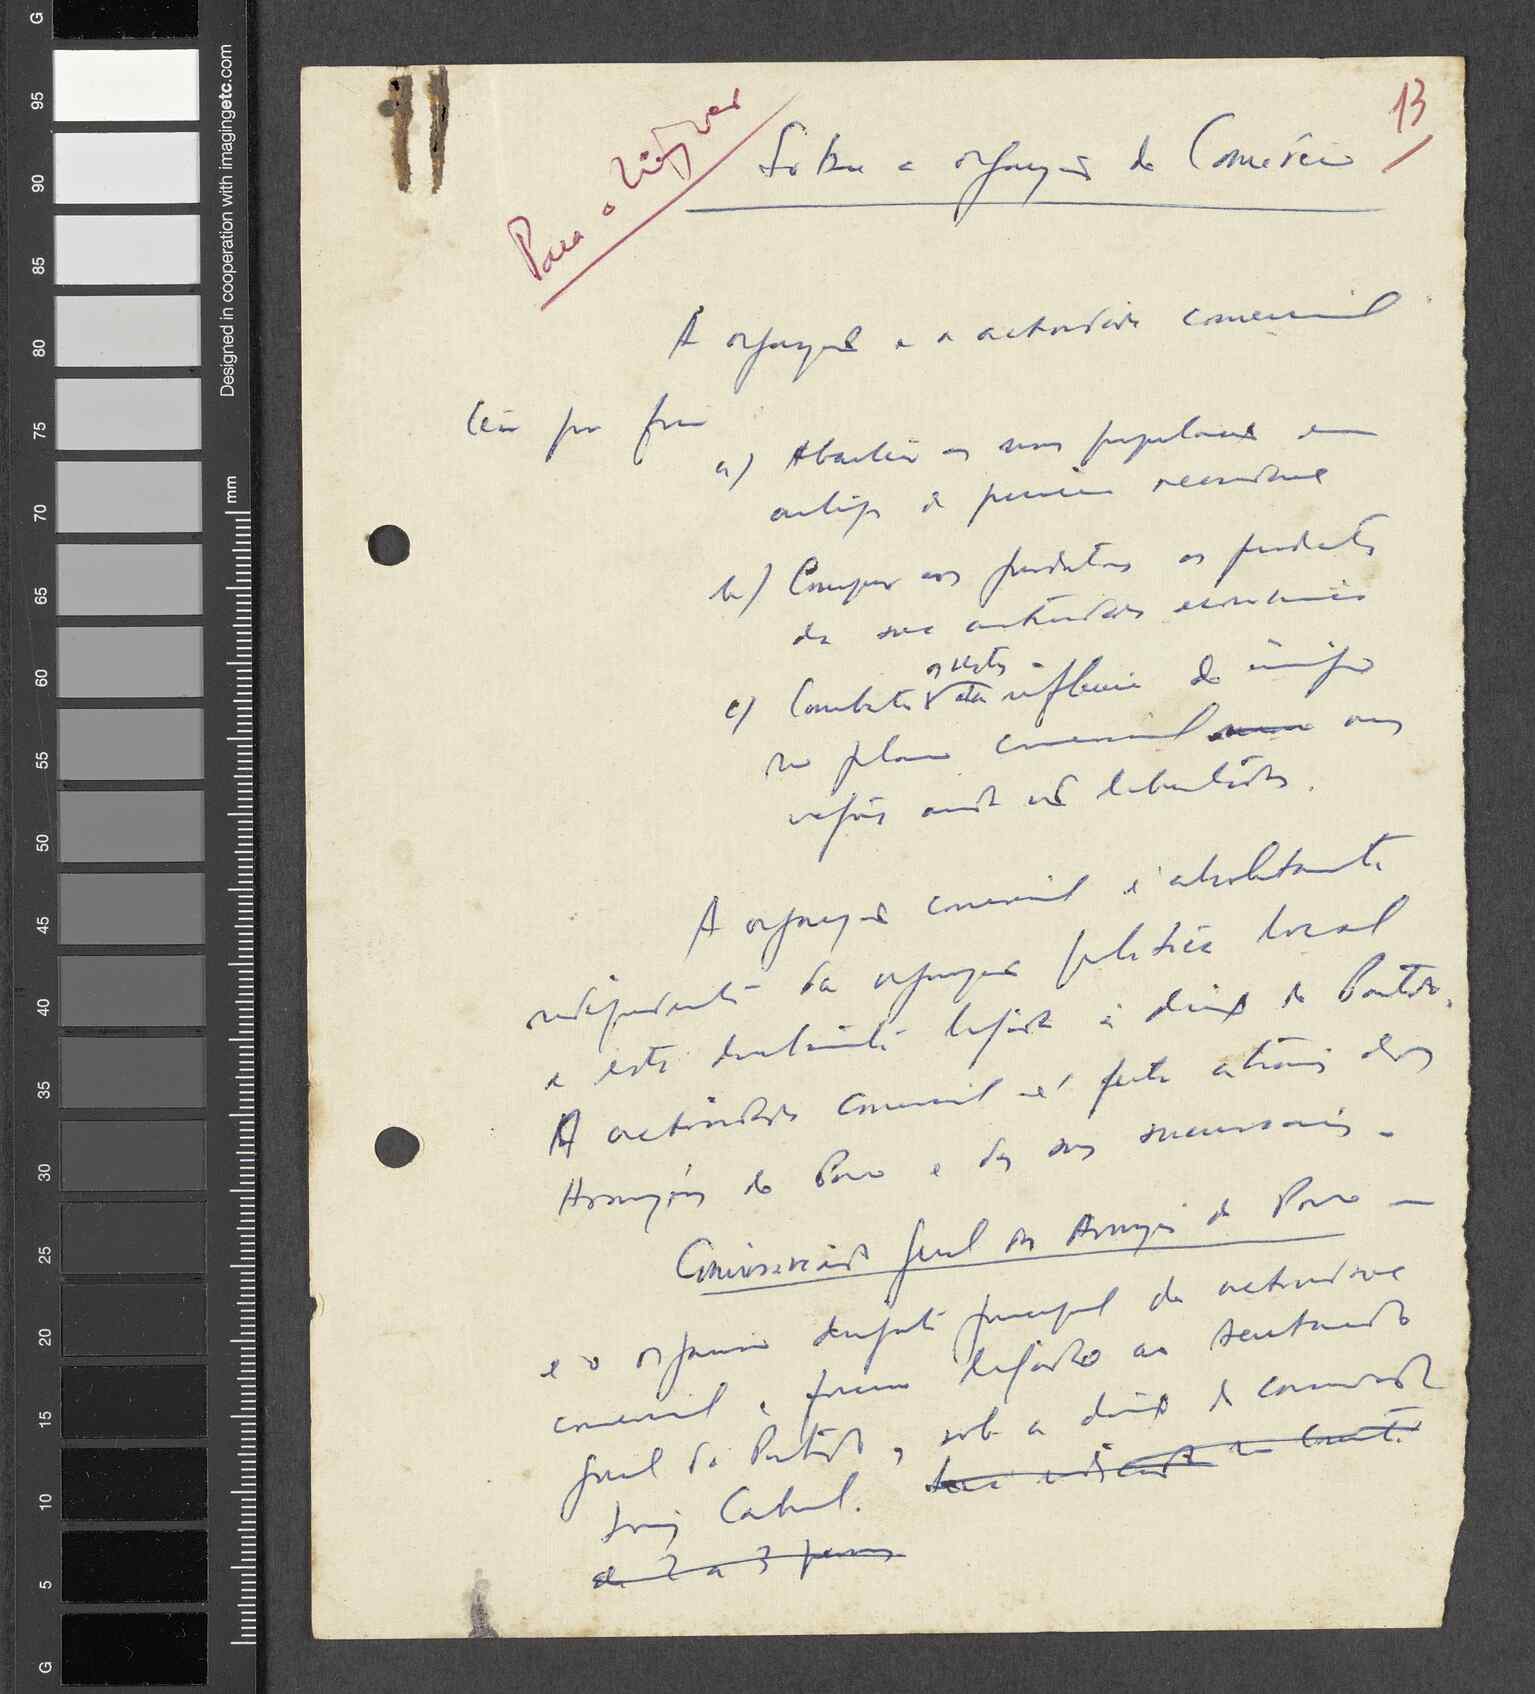 13
Para o
Sobre a organização do Comércio
A organização e a actividade comercial
têm por fim
a) Abastecer as nossas populações em
artigos de primeira necessidade
b) Comprar aos produtores os produtos
da sua actividade económica
c) Combater os restos da influência do inimigo
no plano comercial nas
regiões ainda não libertadas.
A organização comercial é absolutamente
independente da organização política local
e está directamente ligada à direcção do Partido.
A actividade comercial é feita através dos
Armazéns do Povo e das suas sucursais.
Comissariado Geral dos Armazéns do Povo —
é o organismo dirigente principal da actividade
comercial e funciona ligado ao Secretariado
Geral do Partido, sob a direcção do camarada
Luiz Cabral. no Comité
de 2 a 3
G
95
90
85
80
75
70
65
60
55
50
45
40
35
30
25
20
15
10
5
G
mm
Designed in cooperation with imagingetc.com